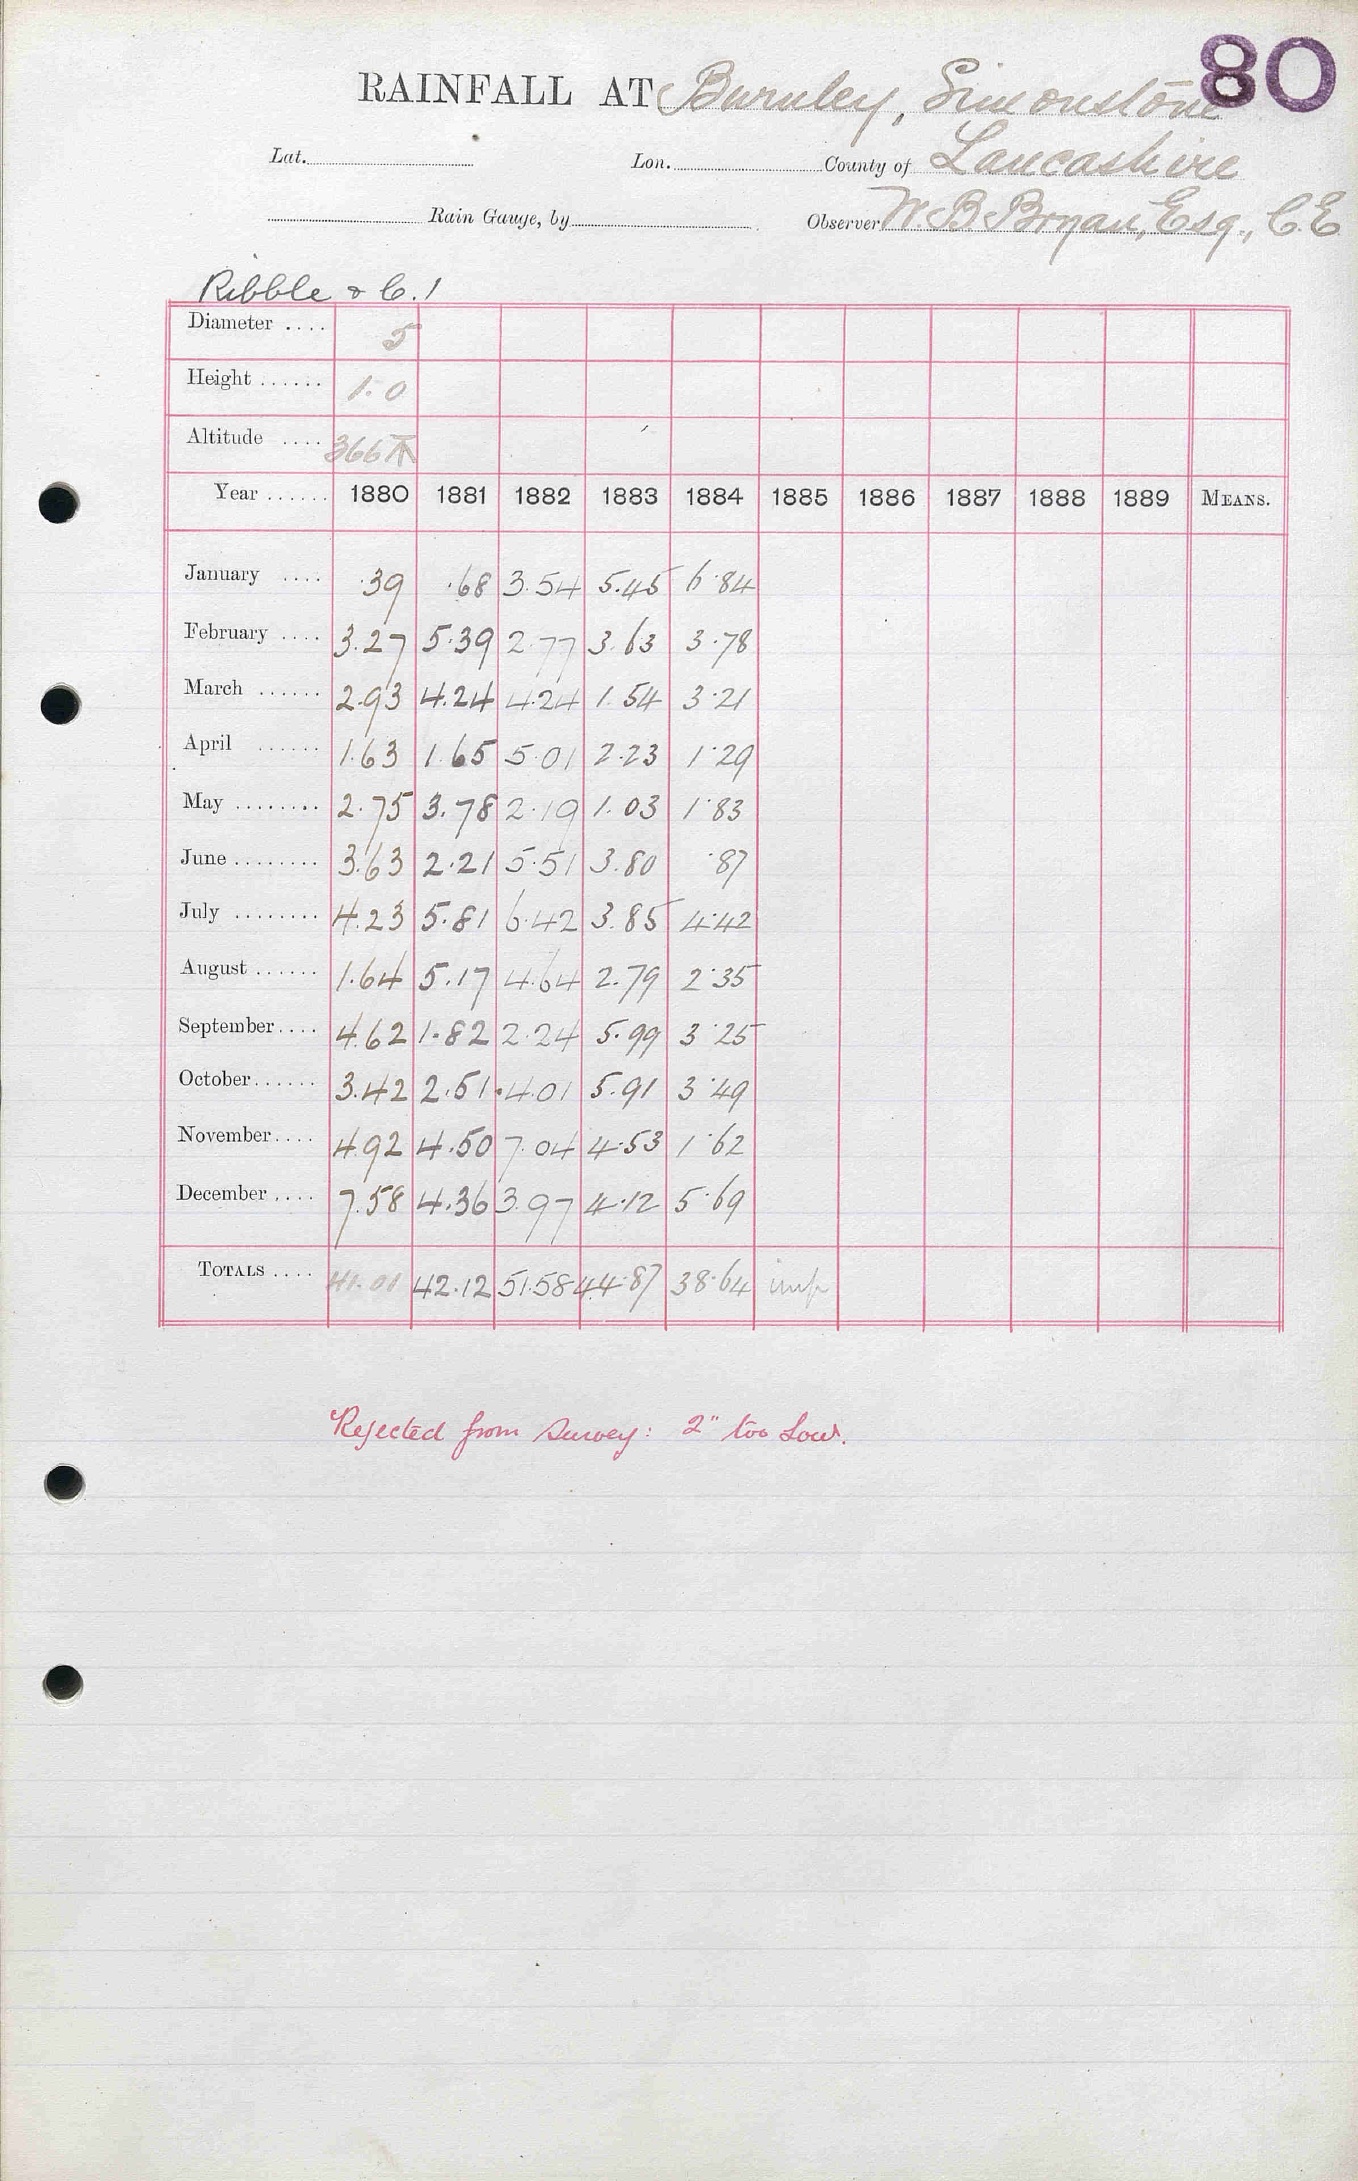 80
RAINFALL AT Burnley, Simonstone
Lat. Lon. County of Lancashire
Rain Gauge, by Observer W. B. Bryan, Esq., C.E
Ribble & C.1
Diameter .... 5
Height ...... 1.0
Altitude .... 366
Year ...... 1880 1881 1882 1883 1884 1885 1886 1887 1888 1889 MEANS.
January .... .39 .68 3.54 5.45 6.84
February .... 3.27 5.39 2.77 3.63 3.78
March ...... 2.93 4.24 4.24 1.54 3.21
April ...... 1.63 1.65 5.01 2.23 1.29
May ........ 2.75 3.78 2.19 1.03 1.83
June ........ 3.63 2.21 5.51 3.80 .87
July ........ 4.23 5.81 6.42 3.85 4.42
August ...... 1.64 5.17 4.64 2.79 2.35
September .... 4.62 1.82 2.24 5.99 3.25
October ...... 3.42 2.51 4.01 5.91 3.49
November .... 4.92 4.50 7.04 4.53 1.62
December .... 7.58 4.36 3.97 4.12 5.69
TOTALS .... 41.01 42.12 51.58 44.87 38.64 imp
Rejected from Survey: 2" too Low.